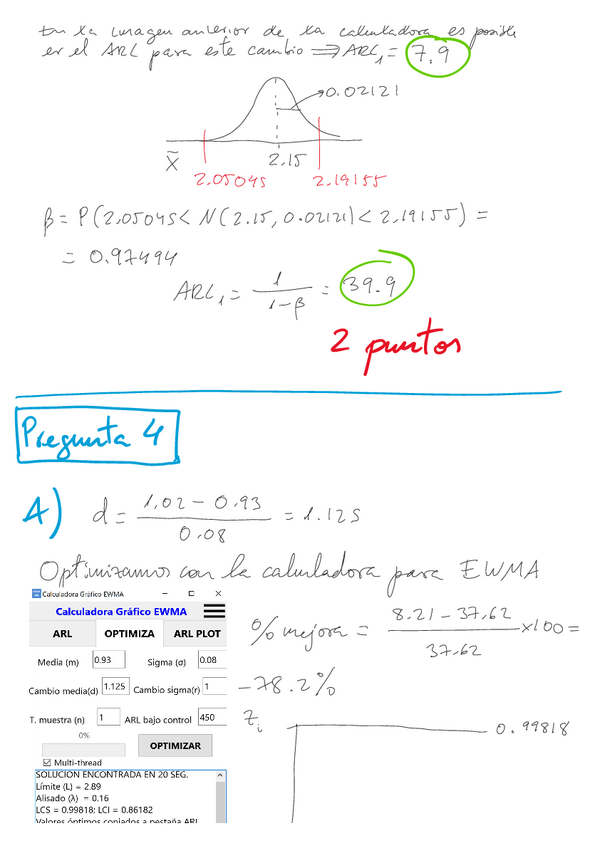 En la imagen anterior de la calculadora es posible
er el ARL para este cambio ⟹ ARL₁ = 7.9
0.02121
X̃ 2.15
2.05045 2.19155
β = P(2.05045 < N(2.15, 0.02121) < 2.19155) =
= 0.97494
ARL₁ = 1 / (1-β) = 39.9
2 puntos
Pregunta 4
A) d = (1.02 - 0.93) / 0.08 = 1.125
Optimizamos con la calculadora para EWMA
Calculadora Gráfico EWMA
Calculadora Gráfico EWMA
ARL OPTIMIZA ARL PLOT
Media (m) 0.93 Sigma (σ) 0.08
Cambio media(d) 1.125 Cambio sigma(r) 1
T. muestra (n) 1 ARL bajo control 450
0%
OPTIMIZAR
Multi-thread
SOLUCION ENCONTRADA EN 20 SEG.
Límite (L) = 2.89
Alisado (λ) = 0.16
LCS = 0.99818; LCI = 0.86182
Valores óptimos copiados a pestaña ARL
% mejora = (8.21 - 37.62) / 37.62 × 100 =
-78.2%
Zᵢ 0.99818